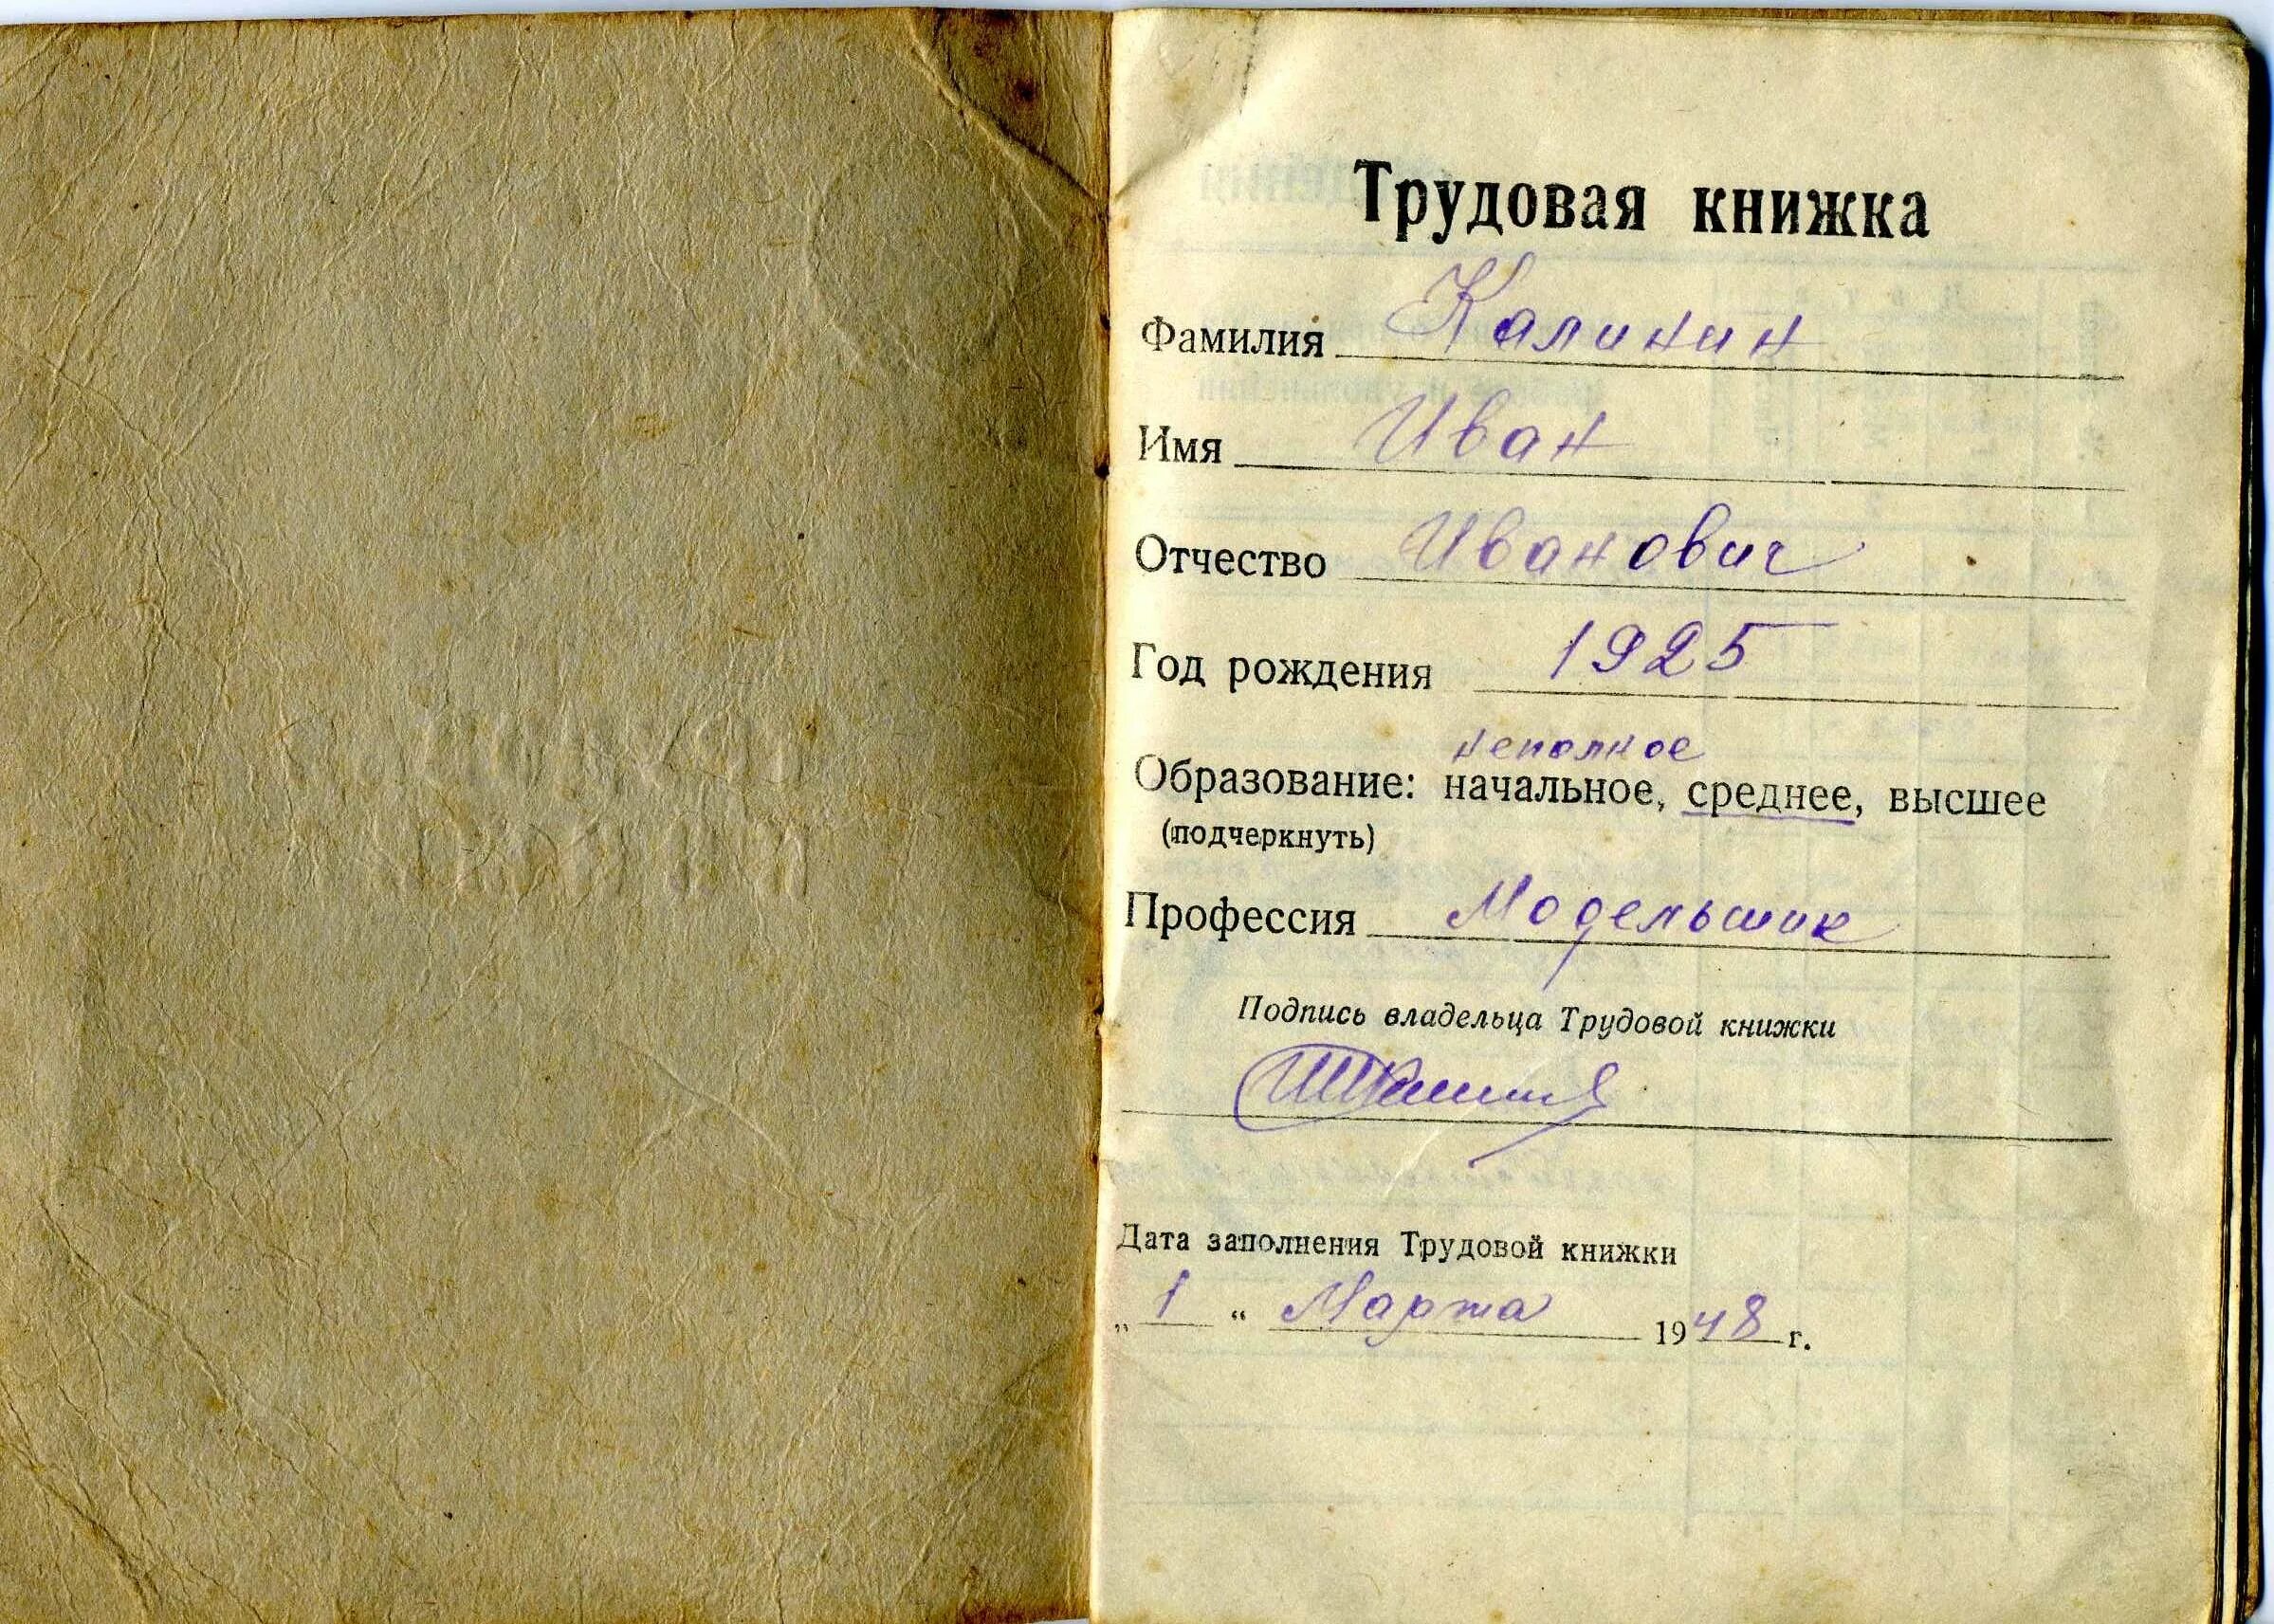 Трудовая книжка
Фамилия Калинин
Имя Иван
Отчество Иванович
Год рождения 1925
неполное
Образование: начальное, среднее, высшее
(подчеркнуть)
Профессия Модельшик
Подпись владельца Трудовой книжки
Дата заполнения Трудовой книжки
„ 1 “ Марта 1948 г.